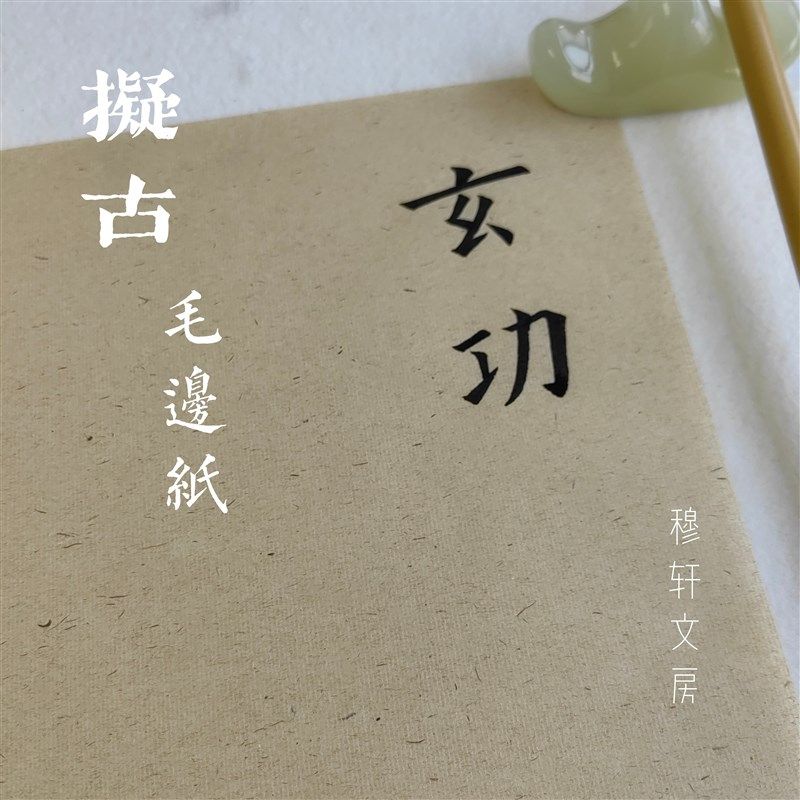 擬古
毛邊紙
玄功
穆轩文房